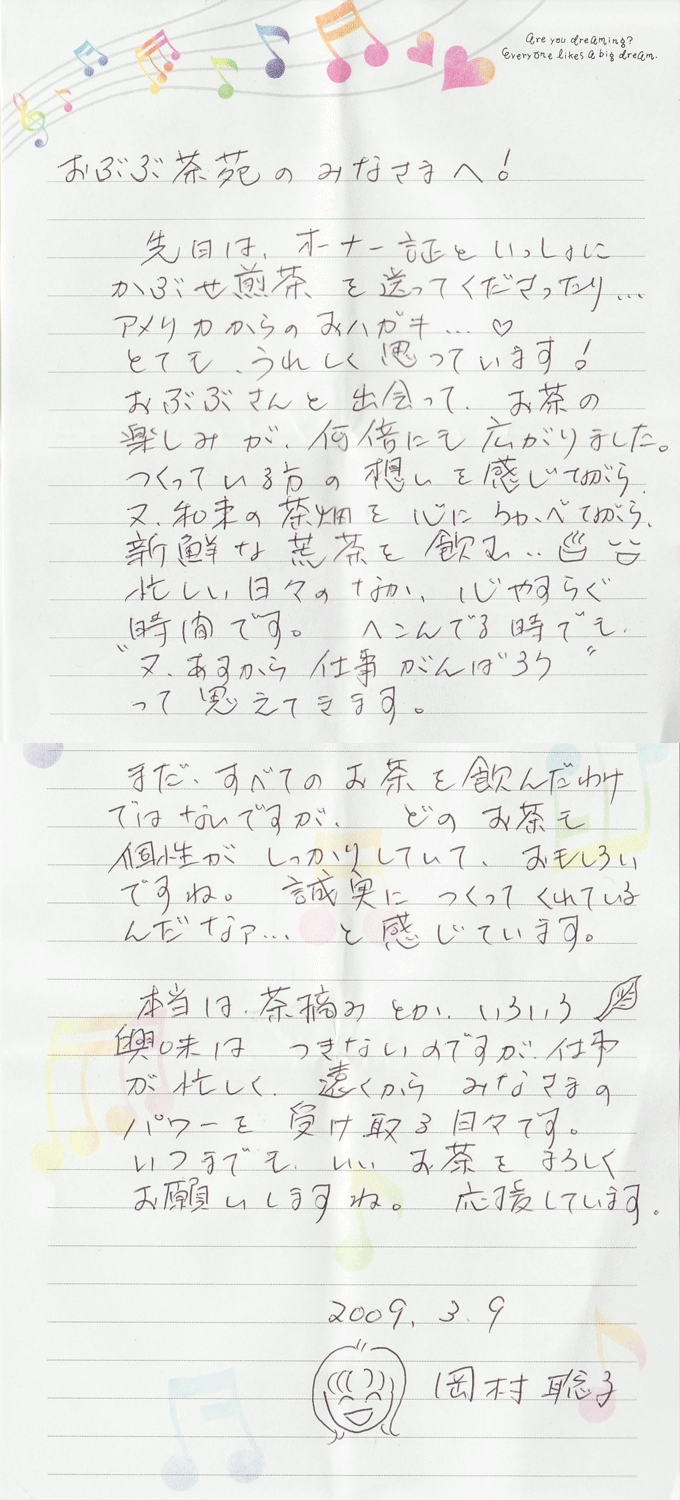 Are you dreaming?
Everyone likes a big dream.
おぶぶ茶苑のみなさまへ!
先日は、オーナー証といっしょに
かぶせ煎茶を送ってくださったり...
アメリカからのおハガキ...♡
とても、うれしく思っています!
おぶぶさんと出会って、お茶の
楽しみが、何倍にも広がりました。
つくっている方の想いを感じながら、
又、和束の茶畑を心にうかべながら、
新鮮な荒茶を飲む..
忙しい日々のなか、心やすらぐ
時間です。 ヘこんでる時でも、
"又、あすから仕事がんばろう"
って思えてきます。
まだ、すべてのお茶を飲んだわけ
ではないですが、 どのお茶も
個性がしっかりしていて、おもしろい
ですね。 誠実につくってくれている
んだなァ... と感じています。
本当は、茶摘みとか、いろいろ
興味はつきないのですが、仕事
が忙しく、遠くからみなさまの
パワーを受け取る日々です。
いつまでも、いいお茶をよろしく
お願いしますね。 応援しています。
2009. 3. 9
岡村聡子